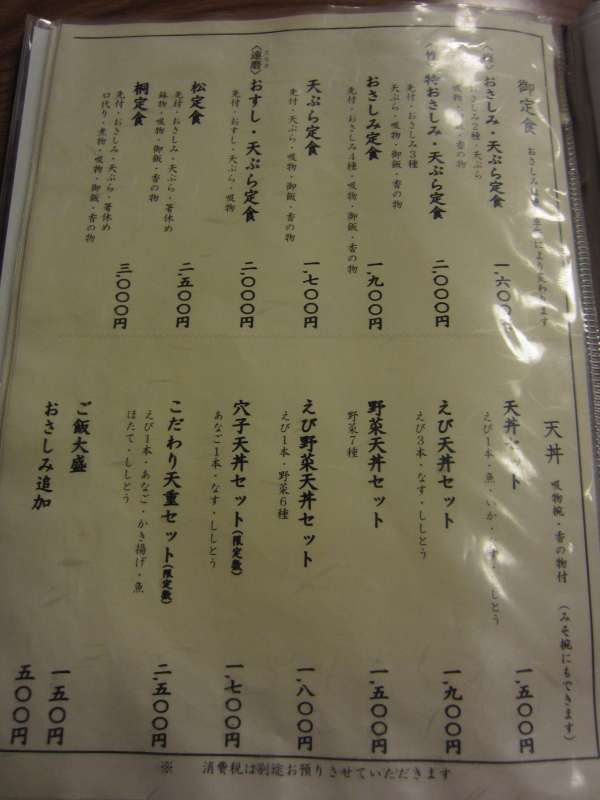 御定食
おさしみ
により変わります
おさしみ・天ぷら定食
おさしみ2種・天ぷら
吸物・御飯・香の物
一、六〇〇円
特おさしみ・天ぷら定食
先付・おさしみ3種
天ぷら・吸物・御飯・香の物
二、〇〇〇円
おさしみ定食
先付・おさしみ4種・吸物・御飯・香の物
一、九〇〇円
天ぷら定食
先付・天ぷら・吸物・御飯・香の物
一、七〇〇円
〈達磨〉おすし・天ぷら定食
先付・おすし・天ぷら・吸物
二、〇〇〇円
松定食
先付・おさしみ・天ぷら・箸休め
鉢物・吸物・御飯・香の物
二、五〇〇円
桐定食
先付・おさしみ・天ぷら・箸休め
口代り・煮物・吸物・御飯・香の物
三、〇〇〇円
天丼 吸物椀・香の物付 (みそ椀にもできます)
天丼セット
えび1本・魚・いか・なす・ししとう
一、五〇〇円
えび天丼セット
えび3本・なす・ししとう
一、九〇〇円
野菜天丼セット
野菜7種
一、五〇〇円
えび野菜天丼セット
えび1本・野菜6種
一、八〇〇円
穴子天丼セット(限定数)
あなご1本・なす・ししとう
一、七〇〇円
こだわり天重セット(限定数)
えび1本・あなご・かき揚げ・魚
ほたて・ししとう
二、五〇〇円
ご飯大盛
一五〇円
おさしみ追加
五〇〇円
※ 消費税は別途お預りさせていただきます